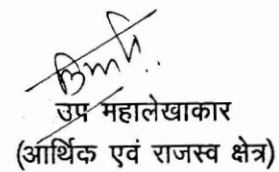 उप महालेखाकार
(आर्थिक एवं राजस्व क्षेत्र)